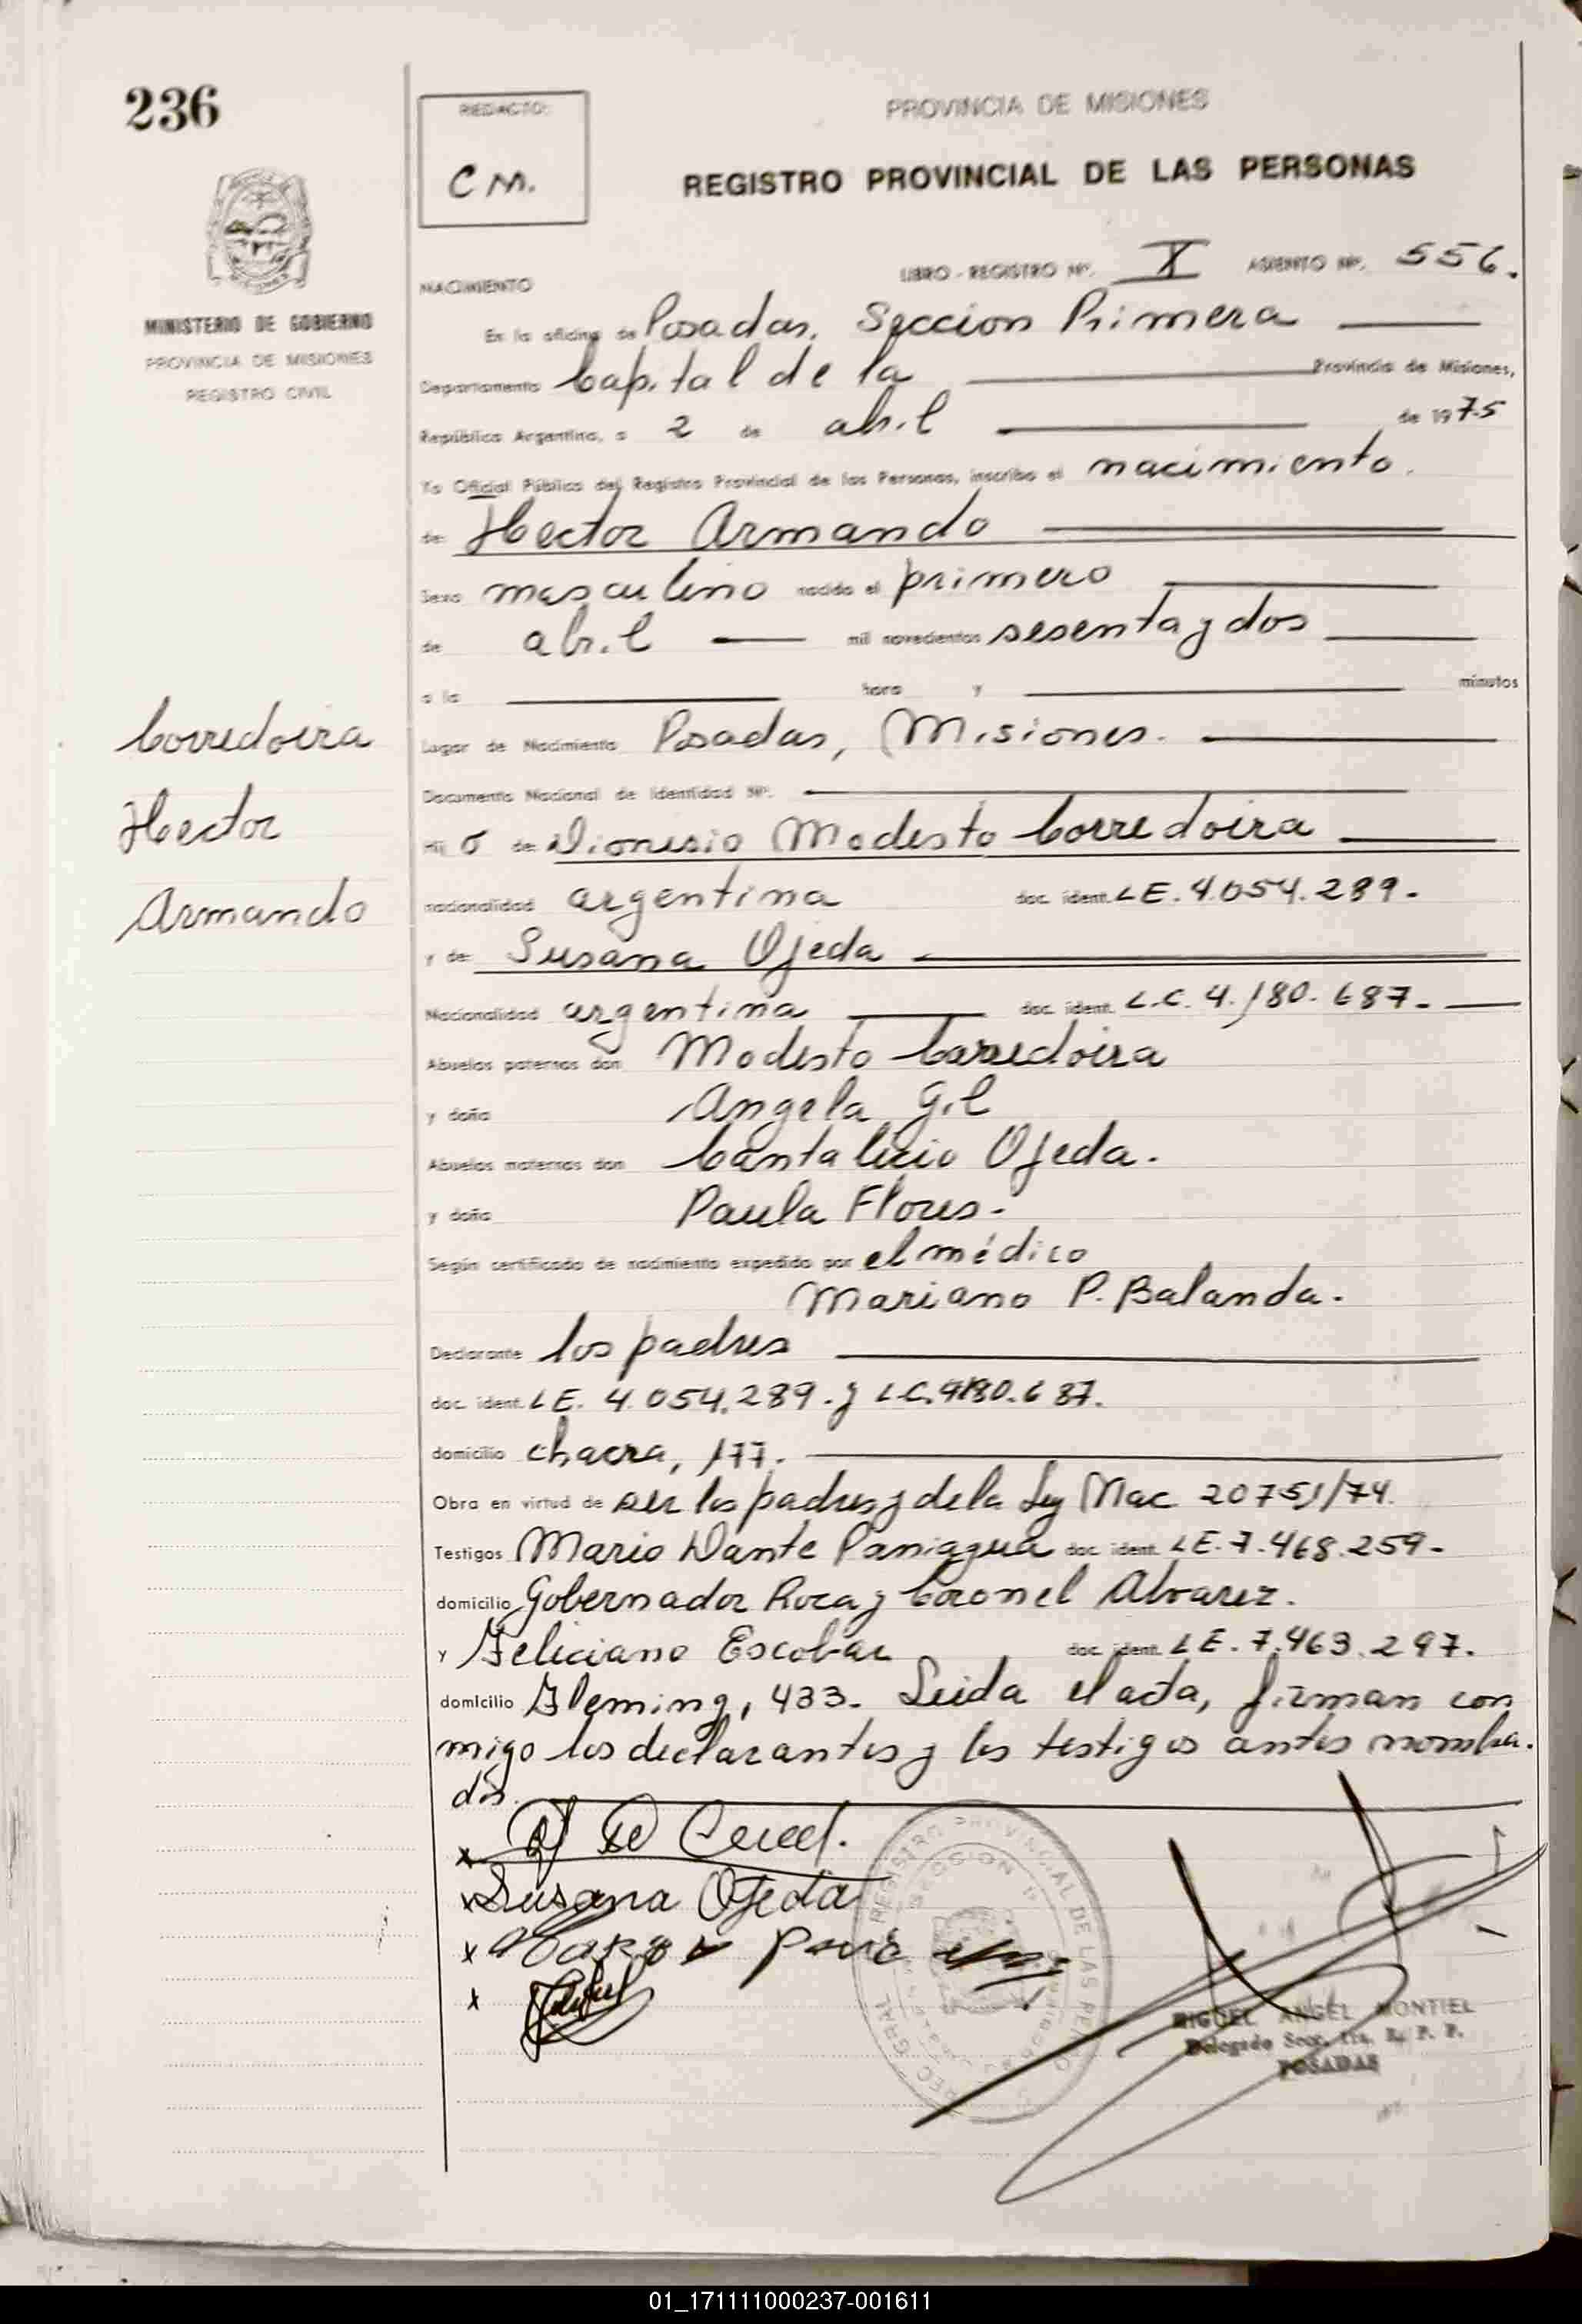 236
REDACTO:
C M.
PROVINCIA DE MISIONES
REGISTRO PROVINCIAL DE LAS PERSONAS
MINISTERIO DE GOBIERNO
PROVINCIA DE MISIONES
REGISTRO CIVIL
LIBRO - REGISTRO Nº. X ASIENTO Nº. 556.
NACIMIENTO
En la oficina de Posadas, Seccion Primera
Departamento Capital de la Provincia de Misiones,
República Argentina, a 2 de abril de 1975
Yo Oficial Público del Registro Provincial de las Personas, inscribo el nacimiento.
de Hector Armando
Sexo masculino nacido el primero
de abril mil novecientos sesenta y dos
a la hora y minutos
Lugar de Nacimiento Posadas, Misiones.
Documento Nacional de Identidad Nº.
Corredoira
Hector
Armando
Hij o de Dionisio Modesto Corredoira
nacionalidad argentina doc. ident. L E. 4.054.289.
y de Susana Ojeda
Nacionalidad argentina doc. ident. L.C. 4.180.687.
Abuelos paternos don Modesto Corredoira
y doña Angela Gil
Abuelos maternos don Cantalicio Ojeda.
y doña Paula Flores.
Según certificado de nacimiento expedido por el médico
Mariano P. Balanda.
Declarante los padres
doc. ident. L E. 4.054.289. y L.C. 4180.687.
domicilio chacra, 177.
Obra en virtud de ser los padres y de la Ley Nac 20751/74.
Testigos Mario Dante Paniagua doc. ident. L E. 7.468.259.
domicilio Gobernador Roca y Coronel Alvarez.
y Feliciano Escobar doc. ident. L E. 7.463.297.
domicilio Fleming, 433. Leida el acta, firman con
migo los declarantes y los testigos antes nombra.
dos.
x
x Susana Ojeda
x
x
MIGUEL ANGEL MONTIEL
Delegado Secc. 1ra. R. P. P.
POSADAS
01_171111000237-001611